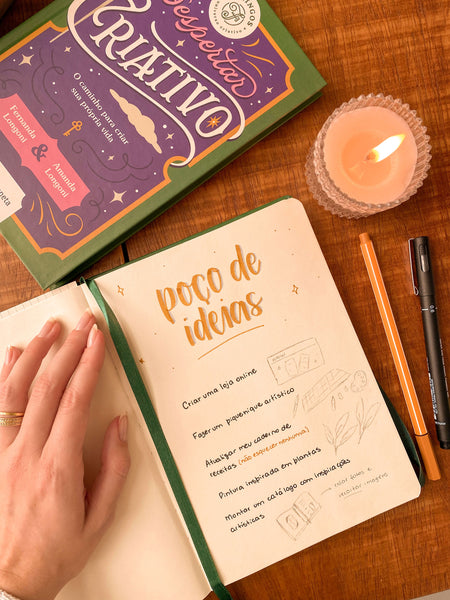 Despertar
CRIATIVO
O caminho para criar
sua própria vida
Fernanda
Longoni
&
Amanda
Longoni
poço de
ideias
Criar uma loja online
Fazer um piquenique artístico
Atualizar meu caderno de
receitas (não esquecer nenhuma)
Pintura inspirada em plantas
Montar um catálogo com inspirações
artísticas
criar fotos e
recortar imagens